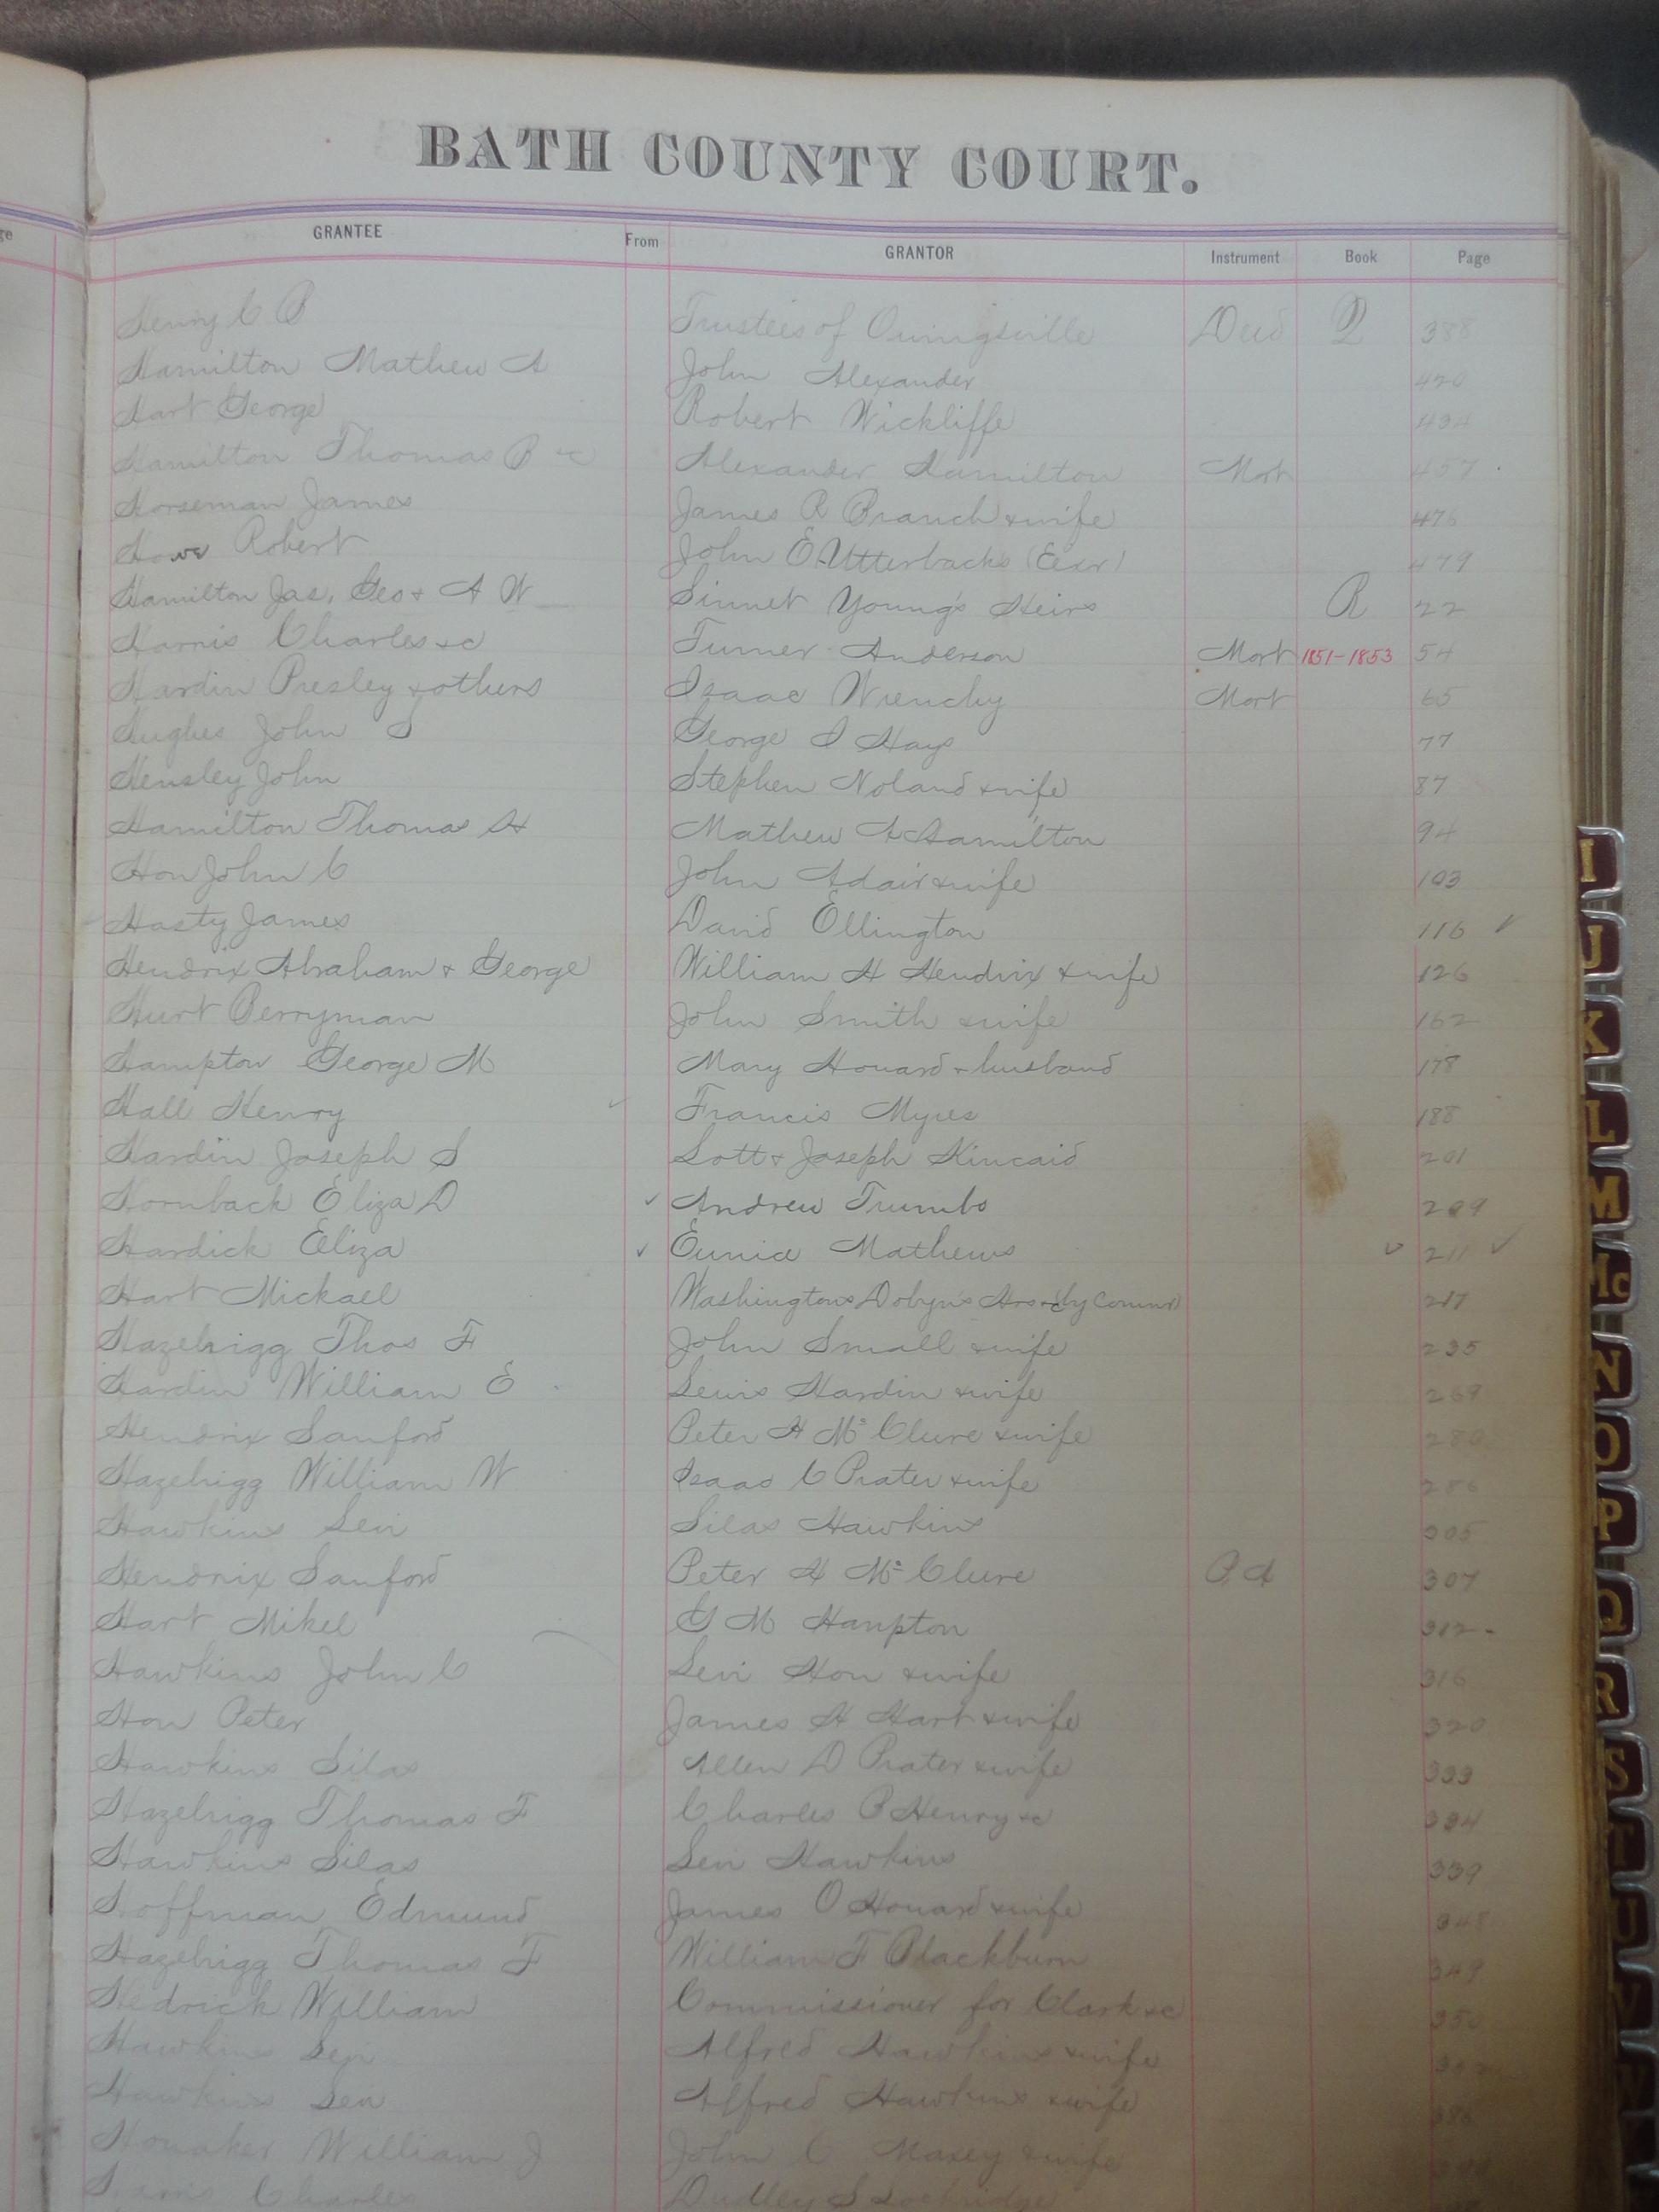 ge
BATH COUNTY COURT.
GRANTEE From GRANTOR Instrument Book Page
Henry C B Trustees of Owingsville Deed Q 388
Hamilton Mathew A John Alexander 420
Hart George Robert Wickliffe 434
Hamilton Thomas B &c Alexander Hamilton Mort 457
Horseman James James R Branch & wife 476
Howe Robert John E Utterbacks (Exr) 479
Hamilton Jas, Geo & A W Sinnet Young's Heirs R 22
Harris Charles &c Turner Anderson Mort 1851-1853 54
Hardin Presley & others Isaac Wrenchy Mort 65
Hughes John S George S Hays 77
Hensley John Stephen Noland & wife 87
Hamilton Thomas H Mathew A Hamilton 94
Hon John C John Adair & wife 103
Hasty James David Ellington 116 ✓
Hendrix Abraham & George William H Hendrix & wife 126
Hurt Berryman John Smith & wife 162
Hampton George M Mary Howard & husband 178
Hall Henry Francis Myres 188
Hardin Joseph S Lott & Joseph Kincaid 201
Hornback Eliza D ✓ Andrew Trumbo 209
Hardick Eliza ✓ Eunice Mathews ✓ 211 ✓
Hart Mickael Washington Dobyns Hrs &c (by Commr) 217
Hazelrigg Thos F John Small & wife 235
Hardin William E Lewis Hardin & wife 269
Hendrix Sanford Peter H McClure & wife 280
Hazelrigg William W Isaac C Prater & wife 286
Hawkins Levi Silas Hawkins 305
Hendrix Sanford Peter H McClure P. A 307
Hart Mikel G M Hampton 312
Hawkins John C Levi Hon & wife 316
Hon Peter James H Hart & wife 320
Hawkins Silas Allen D Prater & wife 333
Hazelrigg Thomas F Charles B Henry &c 334
Hawkins Silas Levi Hawkins 339
Hoffman Edmund James O Howard & wife 348
Hazelrigg Thomas F William F Blackburn 349
Hedrick William Commissioner for Clark &c 350
Hawkins Levi Alfred Hawkins & wife
Hawkins Levi Alfred Hawkins & wife 386
Honaker William J John C Maxey & wife
Charles Dudley S
I
J
K
L
M
Mc
N
O
P
Q
R
S
T
U
V
W